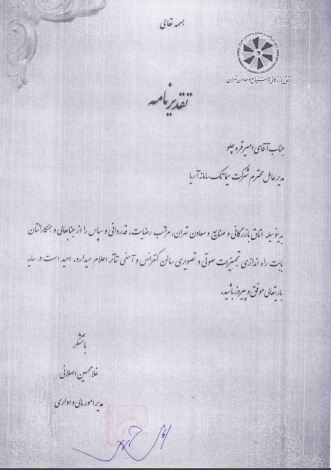 بسمه تعالی
اتاق بازرگانی و صنایع و معادن تهران
تقدیرنامه
جناب آقای امیر قره چلو
مدیر عامل محترم شرکت سیماتک سامانه آریا
بدینوسیله اتاق بازرگانی و صنایع و معادن تهران، مراتب رضایت، قدردانی و سپاس را از جنابعالی و همکارانتان
بابت راه اندازی تجهیزات صوتی و تصویری سالن کنفرانس و آمفی تئاتر اعلام میدارد. امید است در سایه
باریتعالی موفق و پیروز باشید.
با تشکر
غلامحسین اصلانی
مدیر امور مالی و اداری